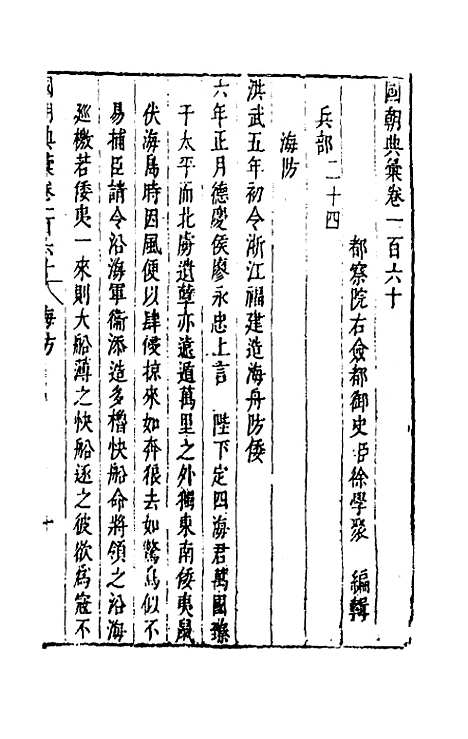 國朝典彙卷一百六十
都察院右僉都御史臣徐學聚 編輯
兵部二十四
海防
洪武五年初令浙江福建造海舟防倭
六年正月德慶侯廖永忠上言 陛下定四海君萬國
于太平而北虜遺孽亦遠遁萬里之外獨東南倭夷鼠
伏海島時因風便以肆侵掠來如奔狼去如驚鳥似不
易捕臣請令沿海軍衞添造多櫓快船命將領之沿海
廵檄若倭夷一來則大船薄之快船逐之彼欲為寇不
國朝典彙卷一百六十 海防